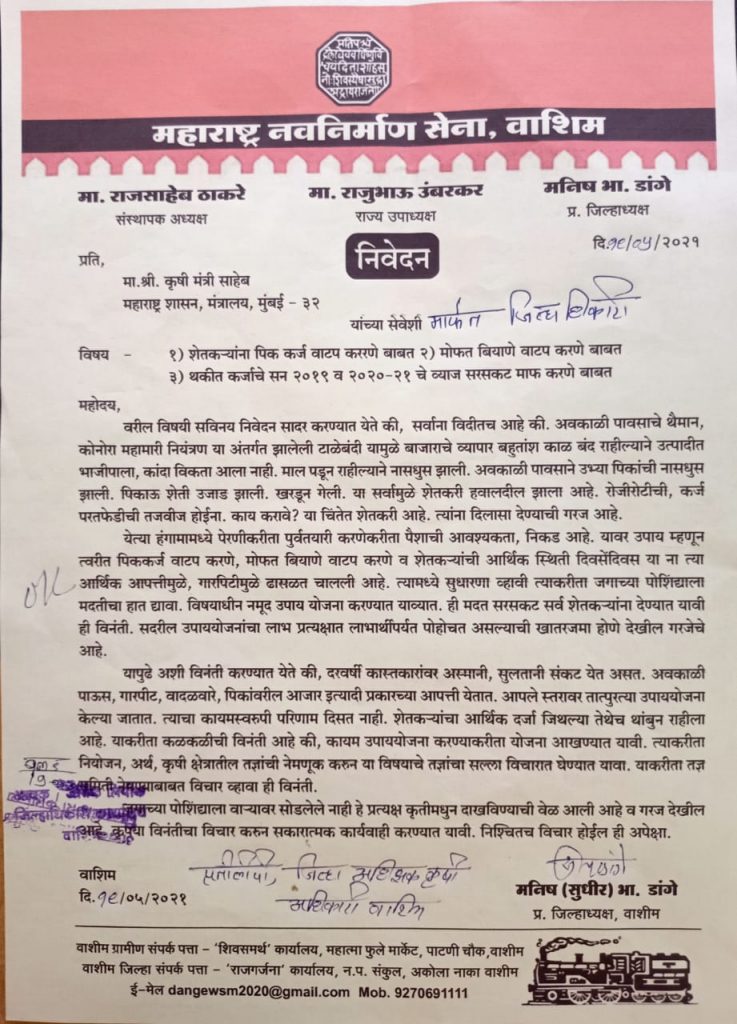 महाराष्ट्र नवनिर्माण सेना, वाशिम
मा. राजसाहेब ठाकरे
संस्थापक अध्यक्ष
मा. राजुभाऊ उंबरकर
राज्य उपाध्यक्ष
मनिष भा. डांगे
प्र. जिल्हाध्यक्ष
दि.१८/०५/२०२१
निवेदन
प्रति,
मा.श्री. कृषी मंत्री साहेब
महाराष्ट्र शासन, मंत्रालय, मुंबई - ३२
यांच्या सेवेशी मार्फत जिल्हाधिकारी
विषय - १) शेतकऱ्यांना पिक कर्ज वाटप कररणे बाबत २) मोफत बियाणे वाटप करणे बाबत
३) थकीत कर्जाचे सन २०१९ व २०२०-२१ चे व्याज सरसकट माफ करणे बाबत
महोदय,
वरील विषयी सविनय निवेदन सादर करण्यात येते की, सर्वाना विदीतच आहे की. अवकाळी पावसाचे थैमान,
कोनोरा महामारी नियंत्रण या अंतर्गत झालेली टाळेबंदी यामुळे बाजाराचे व्यापार बहुतांश काळ बंद राहील्याने उत्पादीत
भाजीपाला, कांदा विकता आला नाही. माल पडून राहील्याने नासधुस झाली. अवकाळी पावसाने उभ्या पिकांची नासधुस
झाली. पिकाऊ शेती उजाड झाली. खरडून गेली. या सर्वामुळे शेतकरी हवालदील झाला आहे. रोजीरोटीची, कर्ज
परतफेडीची तजवीज होईना. काय करावे? या चिंतेत शेतकरी आहे. त्यांना दिलासा देण्याची गरज आहे.
येत्या हंगामामध्ये पेरणीकरीता पुर्वतयारी करणेकरीता पैशाची आवश्यकता, निकड आहे. यावर उपाय म्हणून
त्वरीत पिककर्ज वाटप करणे, मोफत बियाणे वाटप करणे व शेतकऱ्यांची आर्थिक स्थिती दिवसेंदिवस या ना त्या
आर्थिक आपत्तीमुळे, गारपिटीमुळे ढासळत चालली आहे. त्यामध्ये सुधारणा व्हावी त्याकरीता जगाच्या पोशिंद्याला
मदतीचा हात द्यावा. विषयाधीन नमूद उपाय योजना करण्यात याव्यात. ही मदत सरसकट सर्व शेतकऱ्यांना देण्यात यावी
ही विनंती. सदरील उपाययोजनांचा लाभ प्रत्यक्षात लाभार्थीपर्यत पोहोचत असल्याची खातरजमा होणे देखील गरजेचे
आहे.
यापुढे अशी विनंती करण्यात येते की, दरवर्षी कास्तकारांवर अस्मानी, सुलतानी संकट येत असत. अवकाळी
पाऊस, गारपीट, वादळवारे, पिकांवरील आजार इत्यादी प्रकारच्या आपत्ती येतात. आपले स्तरावर तात्पुरत्या उपाययोजना
केल्या जातात. त्याचा कायमस्वरुपी परिणाम दिसत नाही. शेतकऱ्यांचा आर्थिक दर्जा जिथल्या तेथेच थांबुन राहीला
आहे. याकरीता कळकळीची विनंती आहे की, कायम उपाययोजना करण्याकरीता योजना आखण्यात यावी. त्याकरीता
नियोजन, अर्थ, कृषी क्षेत्रातील तज्ञांची नेमणूक करुन या विषयाचे तज्ञांचा सल्ला विचारात घेण्यात यावा. याकरीता तज्ञ
समिती नेमण्याबाबत विचार व्हावा ही विनंती.
जगाच्या पोशिंद्याला वाऱ्यावर सोडलेले नाही हे प्रत्यक्ष कृतीमधुन दाखविण्याची वेळ आली आहे व गरज देखील
आहे. कृपया विनंतीचा विचार करुन सकारात्मक कार्यवाही करण्यात यावी. निश्चितच विचार होईल ही अपेक्षा.
वाशिम
दि.१८/०५/२०२१
प्रतीलीपी, जिल्हा अधिक्षक कृषी
अधिकारी वाशिम
मनिष (सुधीर) भा. डांगे
प्र. जिल्हाध्यक्ष, वाशिम
वाशीम ग्रामीण संपर्क पत्ता - 'शिवसमर्थ' कार्यालय, महात्मा फुले मार्केट, पाटणी चौक,वाशीम
वाशीम जिल्हा संपर्क पत्ता - 'राजगर्जना' कार्यालय, न.प. संकुल, अकोला नाका वाशीम
ई-मेल dangewsm2020@gmail.com Mob. 9270691111